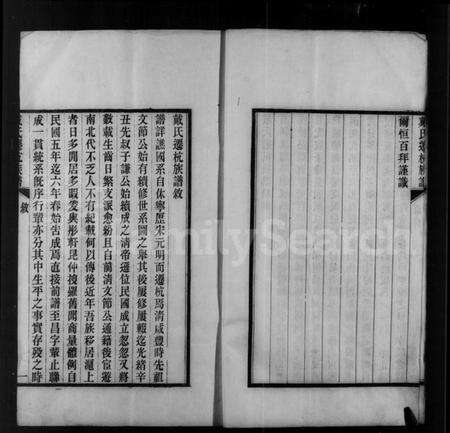 爾恒百拜謹識
戴氏遷杭族譜
戴氏遷杭族譜敘
譜詳譙國系自休寧歷宋元明而遷杭焉清咸豐時先祖
文節公始有續修世系圖之舉其後屢修屢輟迄光緒辛
丑先叔子謙公始續成之清帝遜位民國成立忽忽又將
數載生齒日繁支派愈紛且自前清文節公通籍後宦遊
南北代不乏人不有紀載何以傳後近年吾族移居滬上
者日多閒居多暇爰與彤軒昆仲搜羅舊聞商量體例自
民國五年迄六年春始告成焉直接前譜至昌字輩止聯
成一貫統系既序行輩亦分其中生平之事實存歿之時
敘
一
FamilySearch